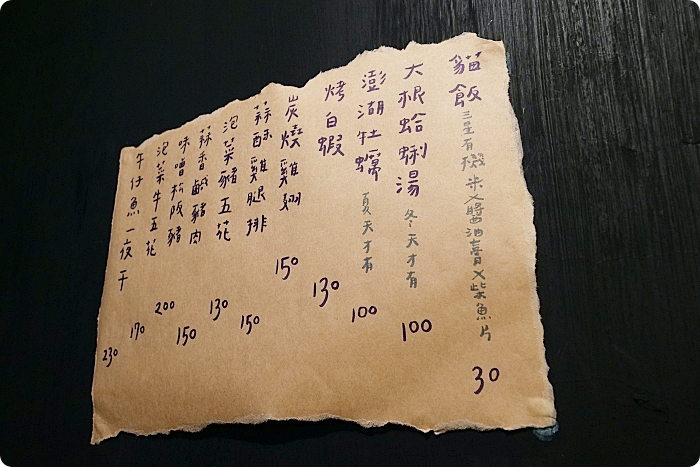 貓飯 三星有機米X醬油膏X柴魚片 30
大根蛤蜊湯 冬天才有 100
澎湖牡蠣 夏天才有 100
烤白蝦 130
炭燒雞翅 150
蒜酥雞腿排 150
泡菜豬五花 130
蒜香鹹豬肉 150
味噌松阪豬 200
泡菜牛五花 170
午仔魚一夜干 230